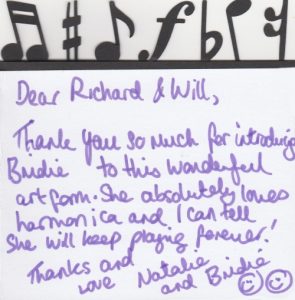 Dear Richard & Will,
Thank you so much for introducing
Birdie to this wonderful
art form. She absolutely loves
harmonica and I can tell
She will keep playing forever!
Thanks and
love Natalie
and Birdie